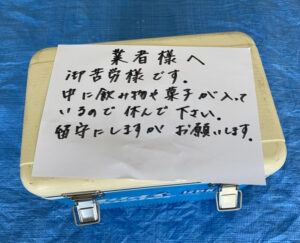 業者様へ
御苦労様です.
中に飲み物や菓子が入って
いるので休んで下さい.
留守にしますがお願いします.